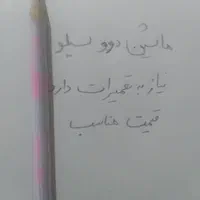 ماشین دوو سیلو
نیاز به تعمیرات دارد
قیمت مناسب